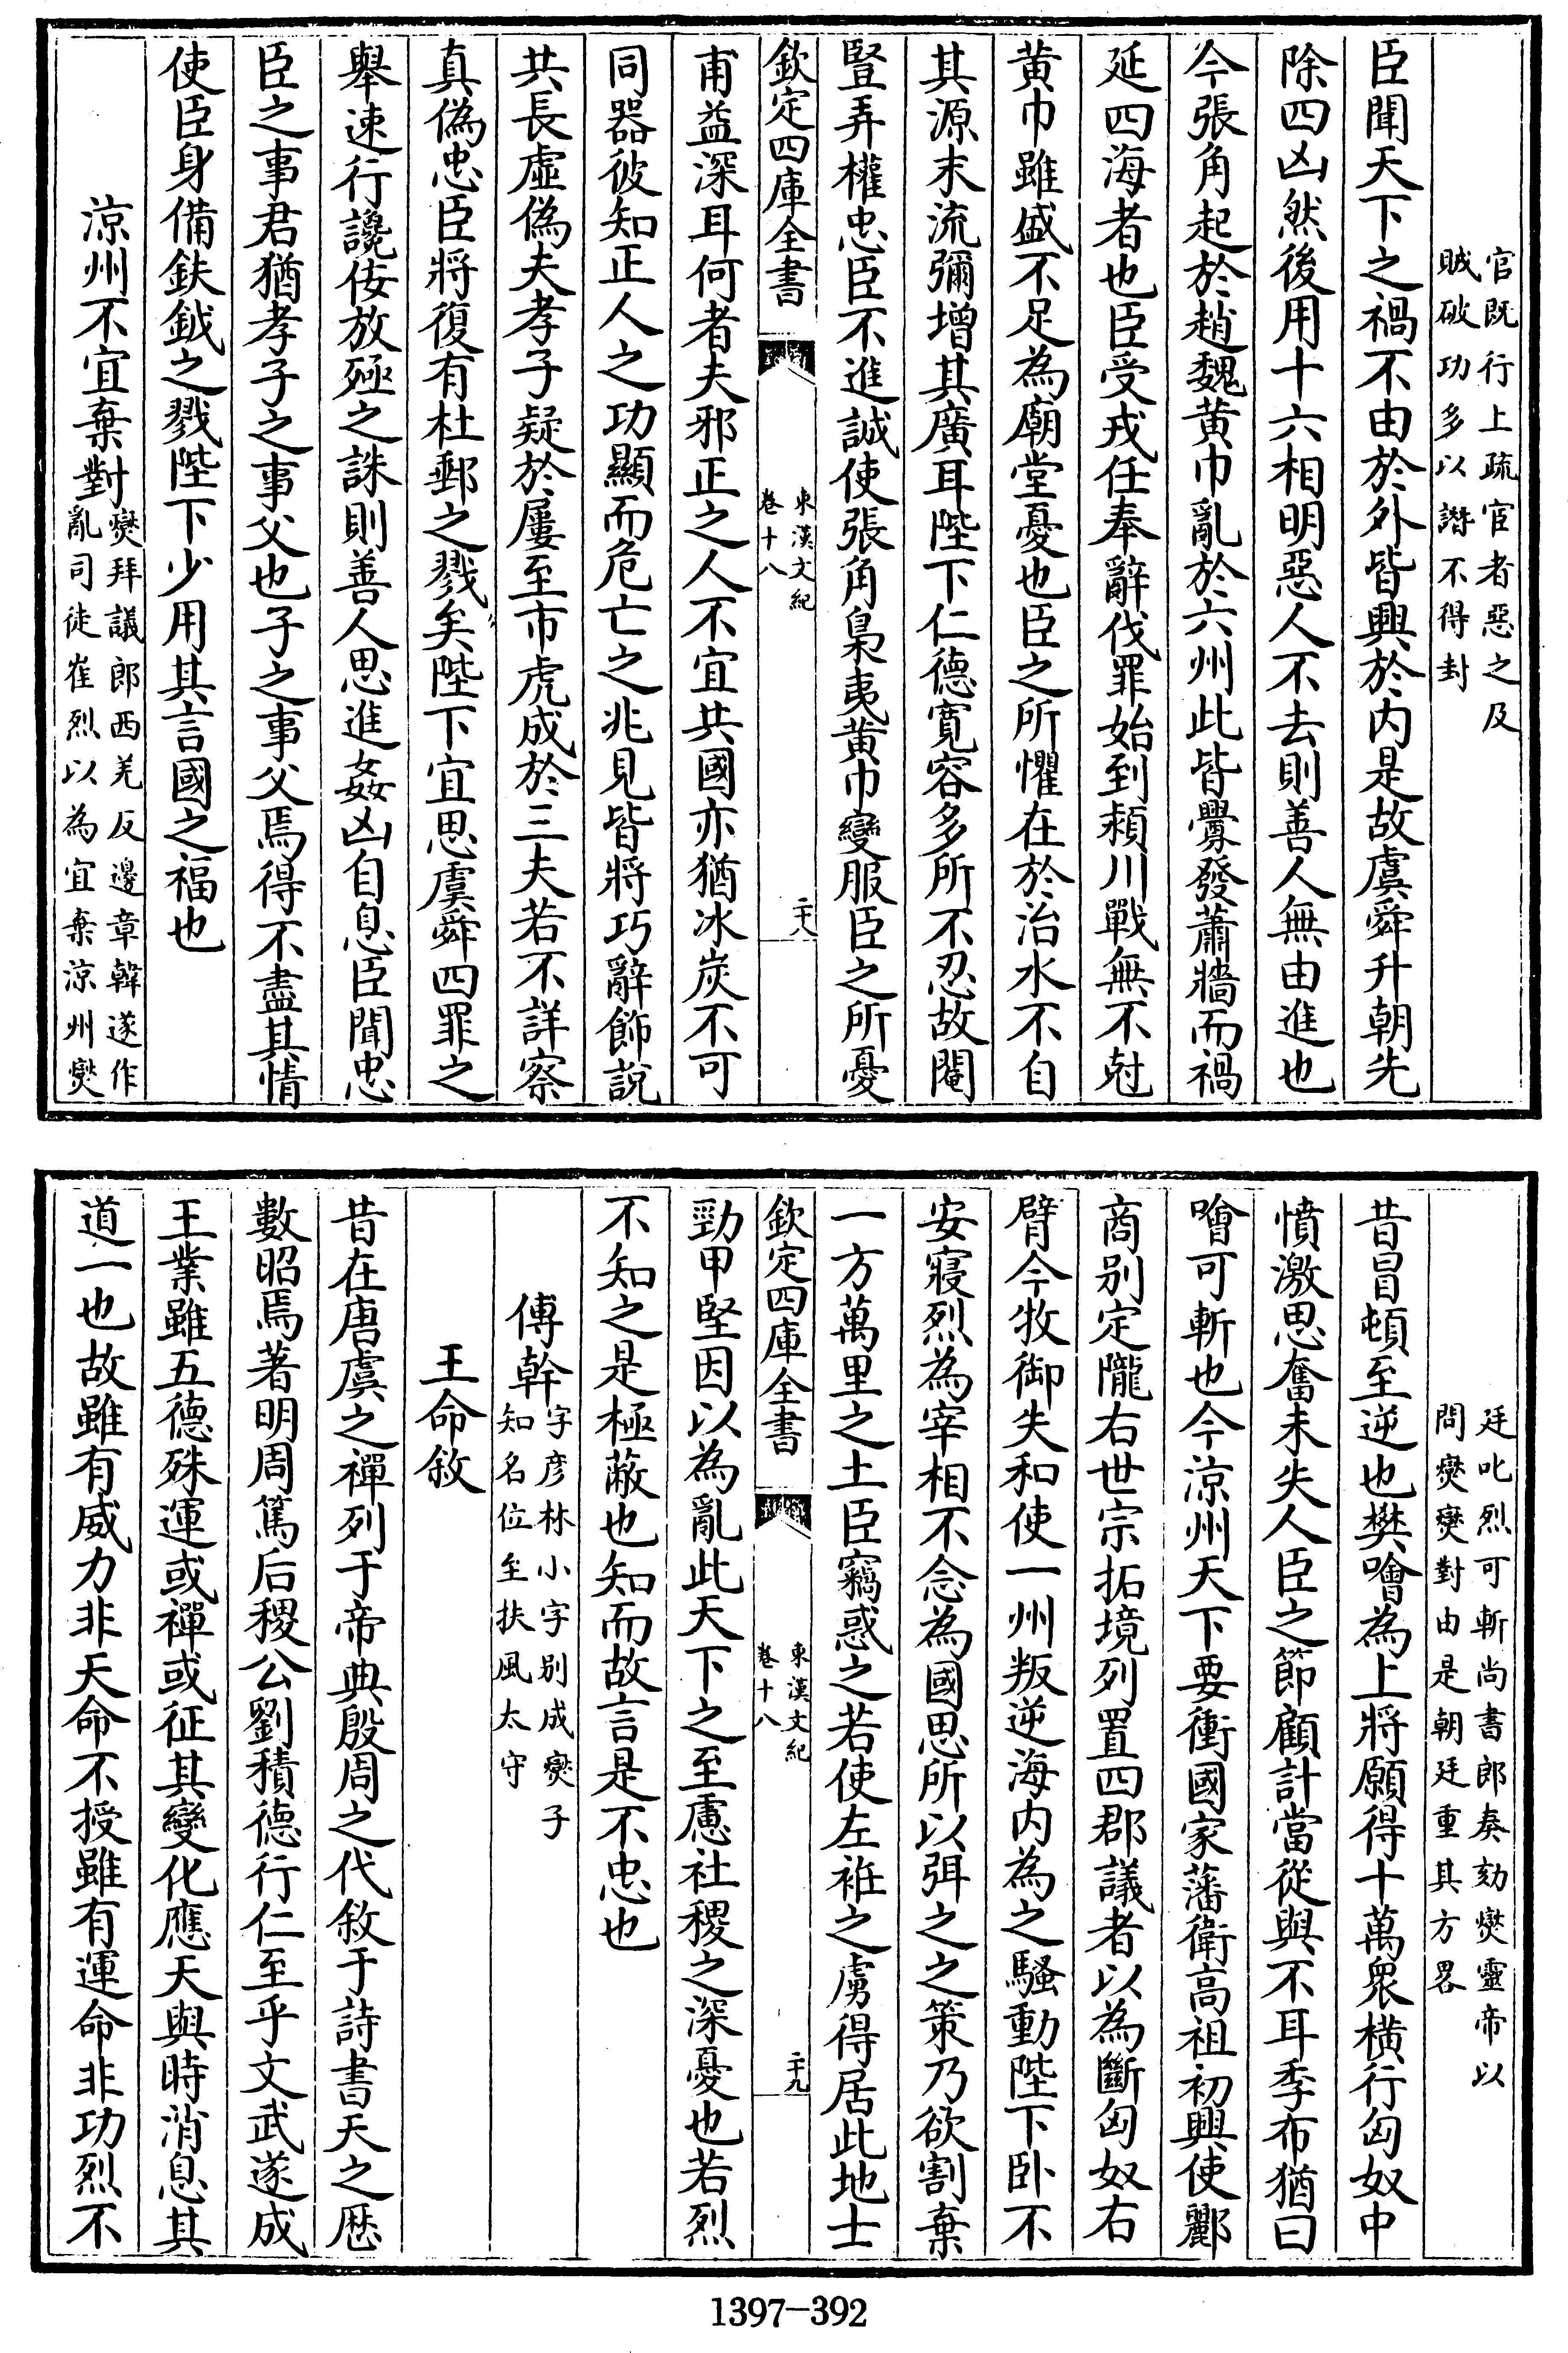 官既行上疏宦者惡之及
賊破功多以譖不得封
臣聞天下之禍不由於外皆興於内是故虞舜升朝先
除四凶然後用十六相明惡人不去則善人無由進也
今張角起於趙魏黄巾亂於六州此皆釁發蕭牆而禍
延四海者也臣受戎任奉辭伐罪始到潁川戰無不尅
黄巾雖盛不足為廟堂憂也臣之所懼在於治水不自
其源末流彌增其廣耳陛下仁德寛容多所不忍故閹
豎弄權忠臣不進誠使張角梟夷黄巾變服臣之所憂
欽定四庫全書
東漢文紀
卷十八
二十八
甫益深耳何者夫邪正之人不宜共國亦猶冰炭不可
同器彼知正人之功顯而危亡之兆見皆將巧辭飾說
共長虛偽夫孝子疑於屢至市虎成於三夫若不詳察
真偽忠臣將復有杜郵之戮矣陛下宜思虞舜四罪之
舉速行讒佞放殛之誅則善人思進姦凶自息臣聞忠
臣之事君猶孝子之事父也子之事父焉得不盡其情
使臣身備鈇鉞之戮陛下少用其言國之福也
涼州不宜棄對
燮拜議郎西羌反邊章韓遂作
亂司徒崔烈以為宜棄涼州燮
廷叱烈可斬尚書郎奏劾燮靈帝以
問燮燮對由是朝廷重其方畧
昔冒頓至逆也樊噲為上將願得十萬衆横行匈奴中
憤激思奮未失人臣之節顧計當從與不耳季布猶曰
噲可斬也今涼州天下要衝國家藩衛高祖初興使酈
商别定隴右世宗拓境列置四郡議者以為斷匈奴右
臂今牧御失和使一州叛逆海内為之騷動陛下卧不
安寢烈為宰相不念為國思所以弭之之策乃欲割棄
一方萬里之土臣竊惑之若使左衽之虜得居此地士
欽定四庫全書
東漢文紀
卷十八
二十九
勁甲堅因以為亂此天下之至慮社稷之深憂也若烈
不知之是極蔽也知而故言是不忠也
傅幹
字彦林小字别成燮子
知名位至扶風太守
王命敘
昔在唐虞之禪列于帝典殷周之代敘于詩書天之厯
數昭焉著明周篤后稷公劉積德行仁至乎文武遂成
王業雖五德殊運或禪或征其變化應天與時消息其
道一也故雖有威力非天命不授雖有運命非功烈不
1397—392